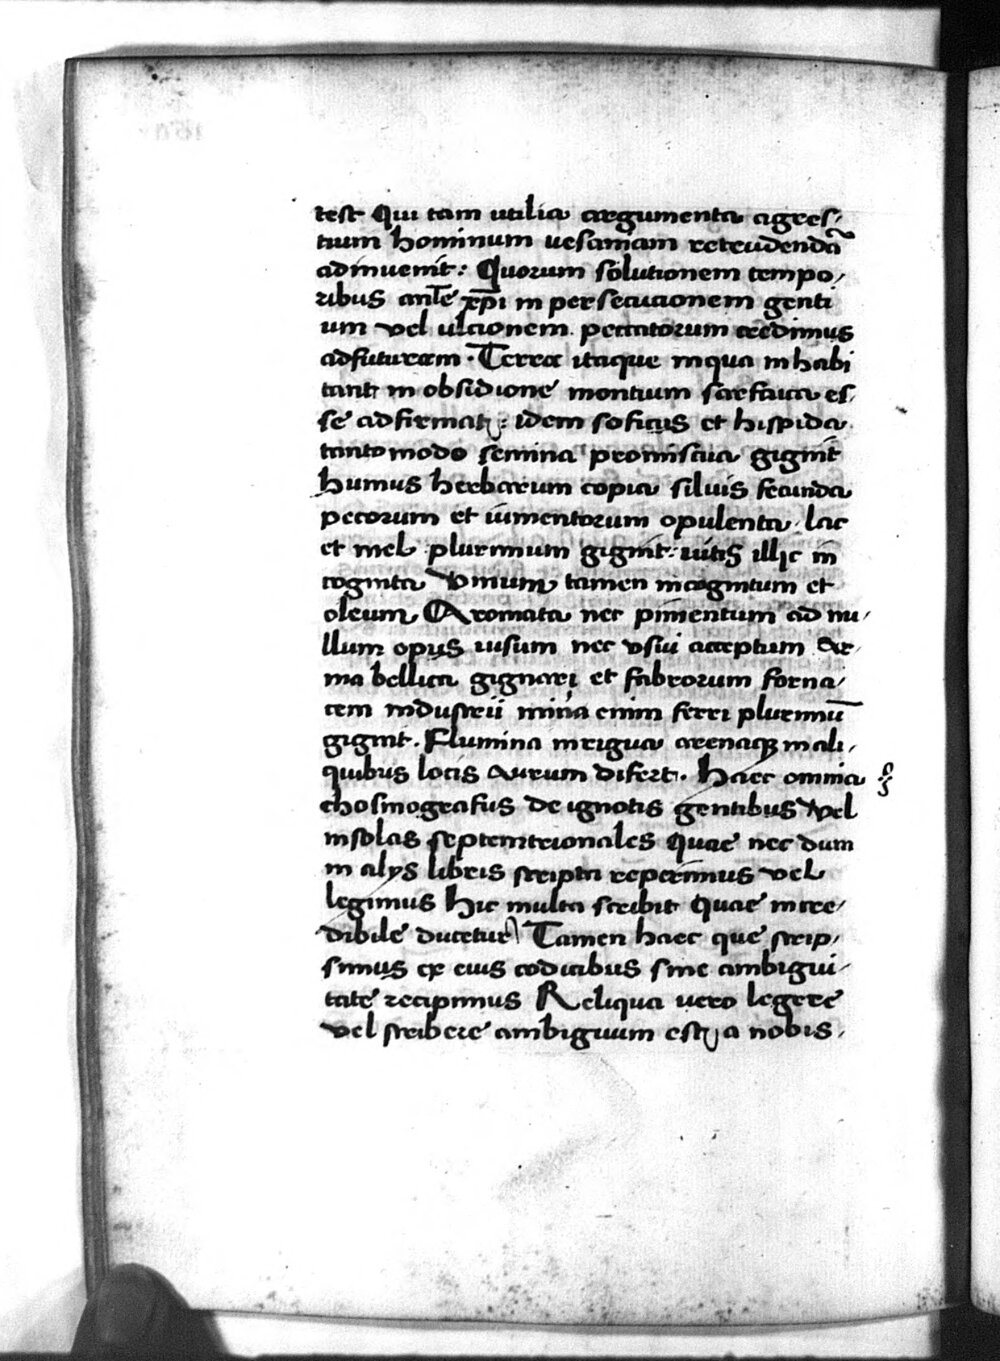 test Qui tam utilia argumenta agres-
tium hominum uesaniam retrudendā
adinuenit: Quorum solutionem tempo-
ribus ante xp̄i in persecucionem genti
um vel ulcionem peccatorum credimus
adfuturam. Terra itaque inqua inhabi
tant in obsidione montium sarfaica es-
se adfirmat: idem soficus et hispida
tantomodo semina promiscua gignit
humus herbarum copia siluis fecunda
pecorum et iumentorum opulenta. lac
et mel plurimum gignit: uitis illic in
cognita Vinum tamen incognitum et
oleum Aromata nec pimentum ad nu-
llum opus uisum nec vsui acceptum Ar-
ma bellica gignari et fabrorum forna-
cem industrii mina enim ferri plurimū
gignit. Flumina inrigua arenaq; in ali-
quibus locis Aurum difert. Haec omnia
chosmografus de ignotis gentibus Vel
insolas septemtrionales Quae nec dum
in alys libris scripta reperimus vel
legimus Hic multa scribit Quae incre-
dibile ducetur Tamen haec que scrip-
simus ex eius codicibus sine ambigui-
tate recipimus Reliqua uero legere
vel scribere ambiguum est a nobis.